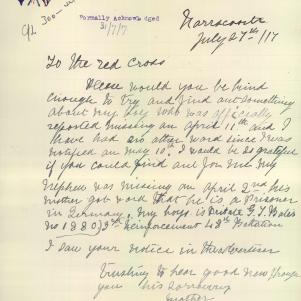 300
Formally Acknowledged
31/7/17
Narracoorte
July 27th/17
To the red Cross
Please would you be kind
enough to try and find out something
about my boy who was officially
reported missing on April 11th and I
have had no other word since I was
notified on May 10th I would be so grateful
if you could find out for me my
nephew was missing on April 2nd his
mother got word that he is a Prisoner
in Germany. my boys is Private
No 1880 3rd Reinforcement 48th Batation
I saw your notice in the advertiser
Trusting to hear good news through
you his sorrowing
mother